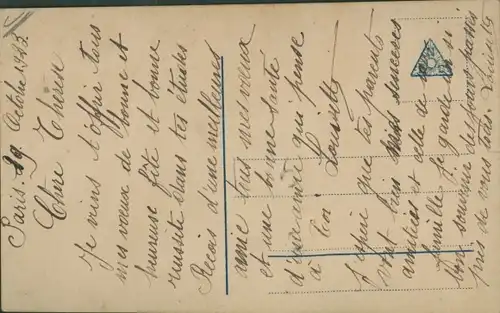 Paris. 29 Octobre 1923.
Chère Thérèse
Je viens t'offrir tous
mes vœux de bonne et
heureuse fête et bonne
réussite dans tes études
Reçois d'une meilleure
amie tous mes vœux
et une bonne santé
d'une amie qui pense
à toi
Louisette
J'espère que tes parents
vont bien mes sincères
amitiés et celle de ma
famille Je garde un si
bon souvenir des jours passés
près de vous tous. Louisette